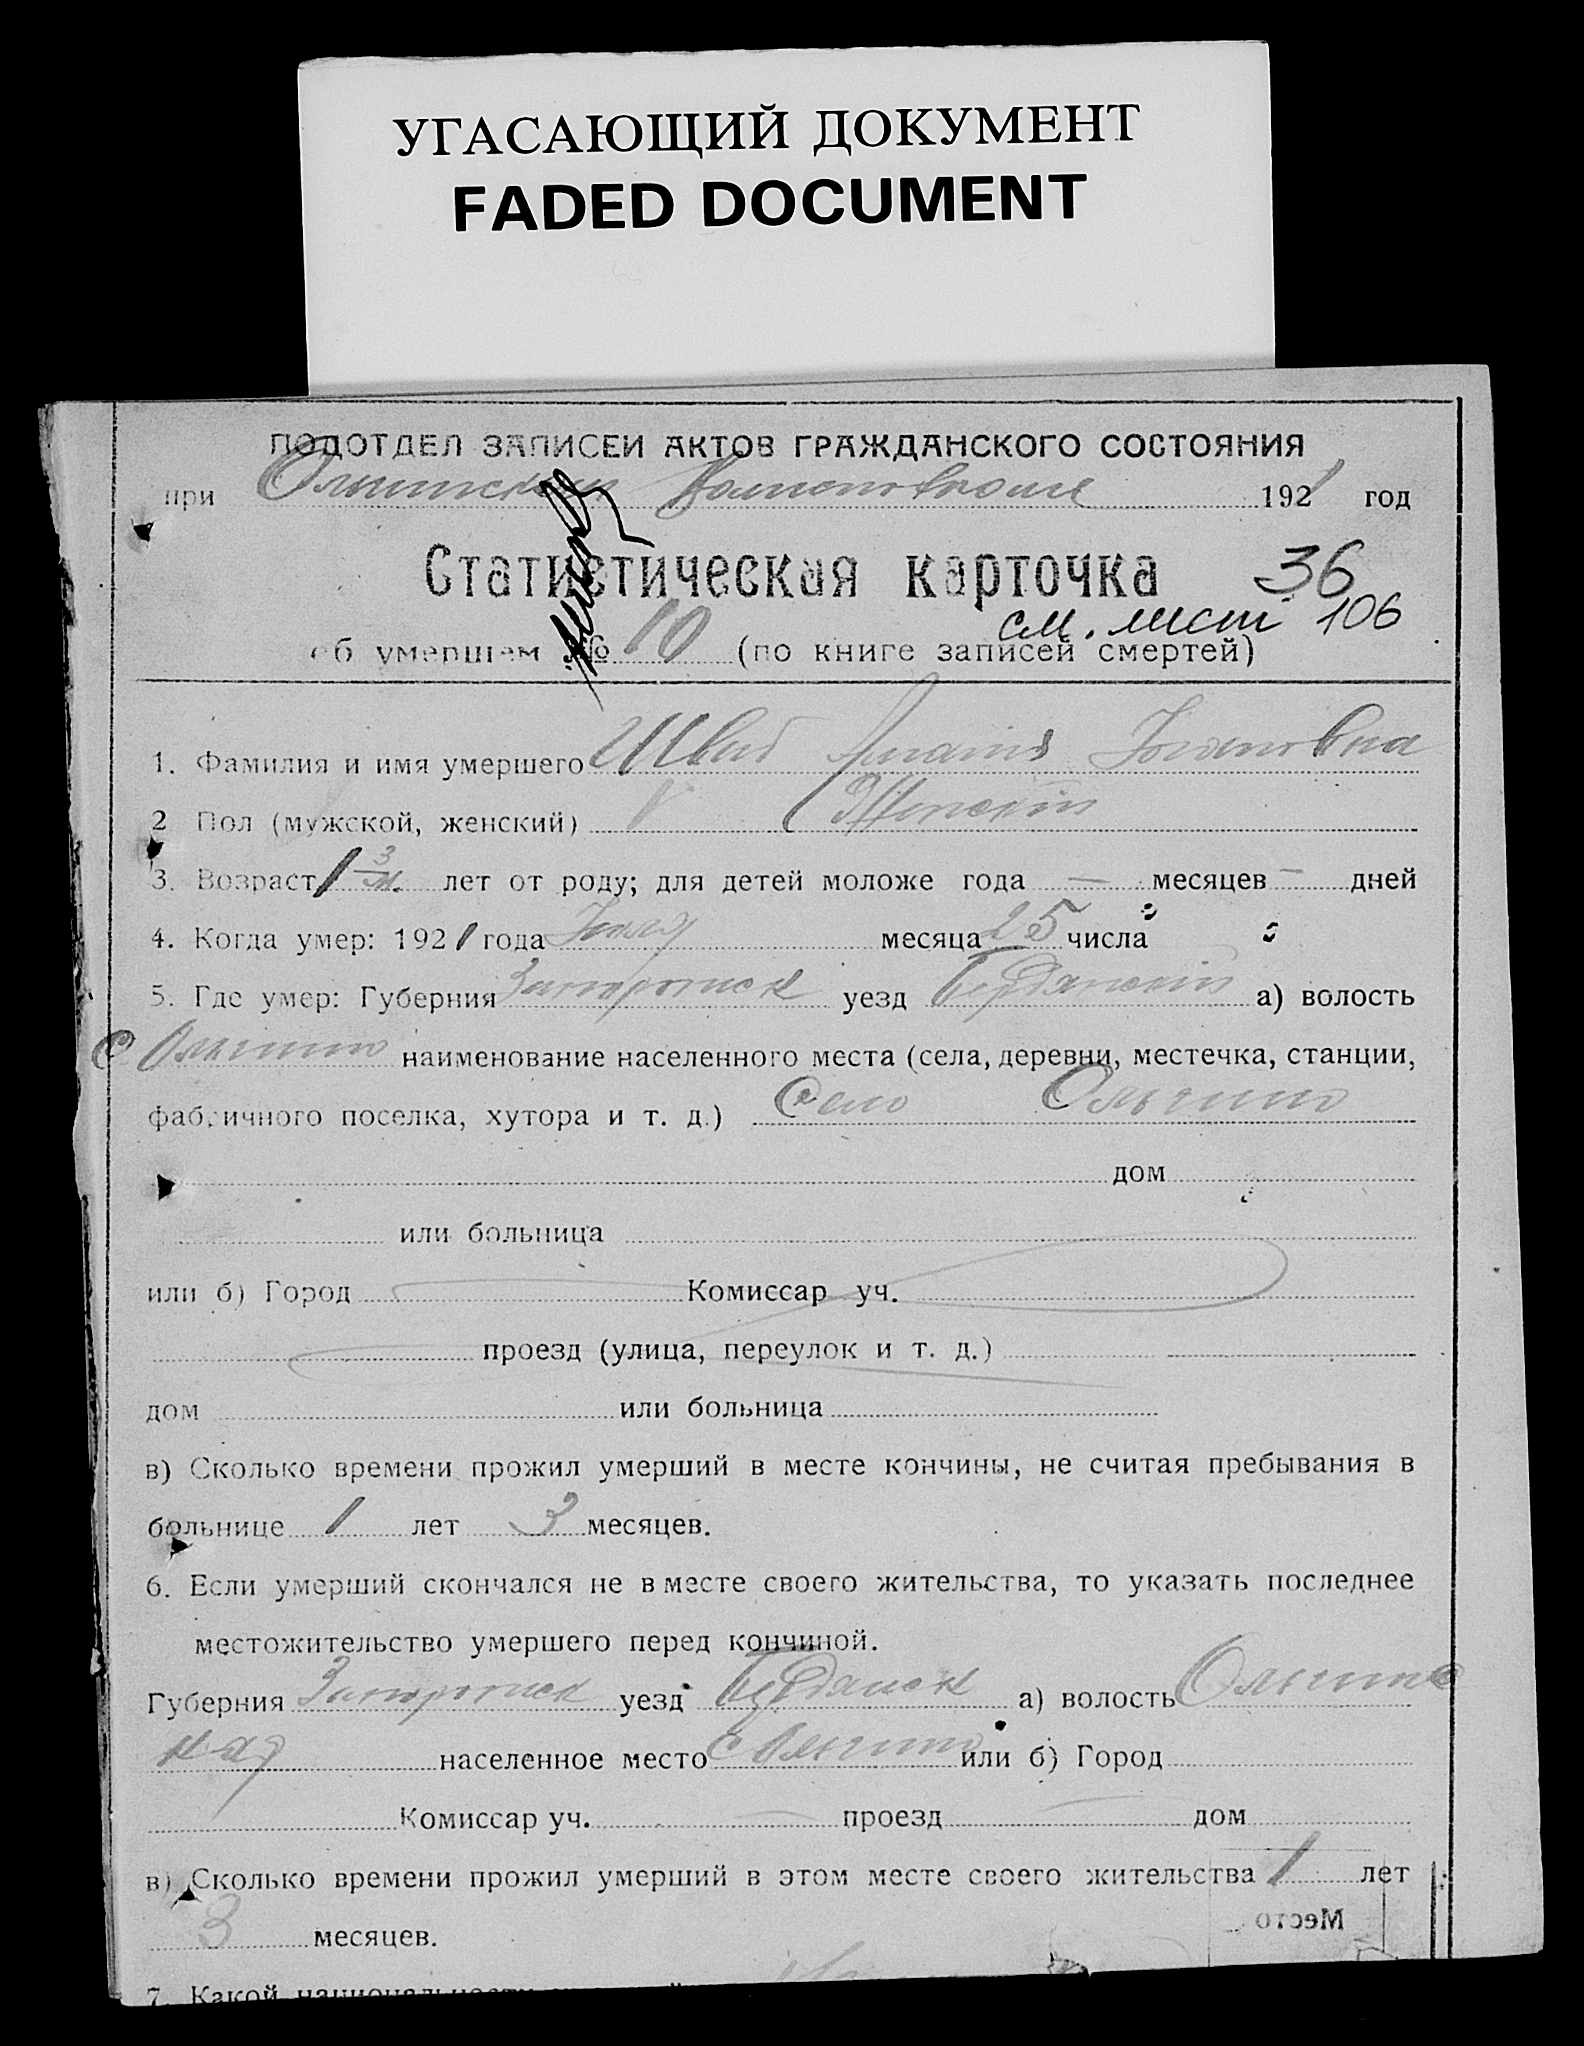 УГАСАЮЩИЙ ДОКУМЕНТ
FADED DOCUMENT
ПОДОТДЕЛ ЗАПИСЕЙ АКТОВ ГРАЖДАНСКОГО СОСТОЯНИЯ
при 1921 год
Статистическая карточка 36
см. лист 106
об умершем № 10 (по книге записей смертей)
1. Фамилия и имя умершего Шваб
2 Пол (мужской, женский) Женский
3. Возраст 1 3 м. лет от роду; для детей моложе года — месяцев — дней
4. Когда умер: 1921 года месяца 25 числа
5. Где умер: Губерния Запорожск уезд Бердянский а) волость
с Ольгино наименование населенного места (села, деревни, местечка, станции,
фабричного поселка, хутора и т. д.) Село Ольгино
дом
или больница
или б) Город Комиссар уч.
проезд (улица, переулок и т. д.)
дом или больница
в) Сколько времени прожил умерший в месте кончины, не считая пребывания в
больнице 1 лет 3 месяцев.
6. Если умерший скончался не в месте своего жительства, то указать последнее
местожительство умершего перед кончиной.
Губерния Запорожск уезд Бердянск а) волость Ольгинс
кая населенное место с Ольгино или б) Город
Комиссар уч. проезд дом
в) Сколько времени прожил умерший в этом месте своего жительства 1 лет
Место
3 месяцев.
7. Какой национальности